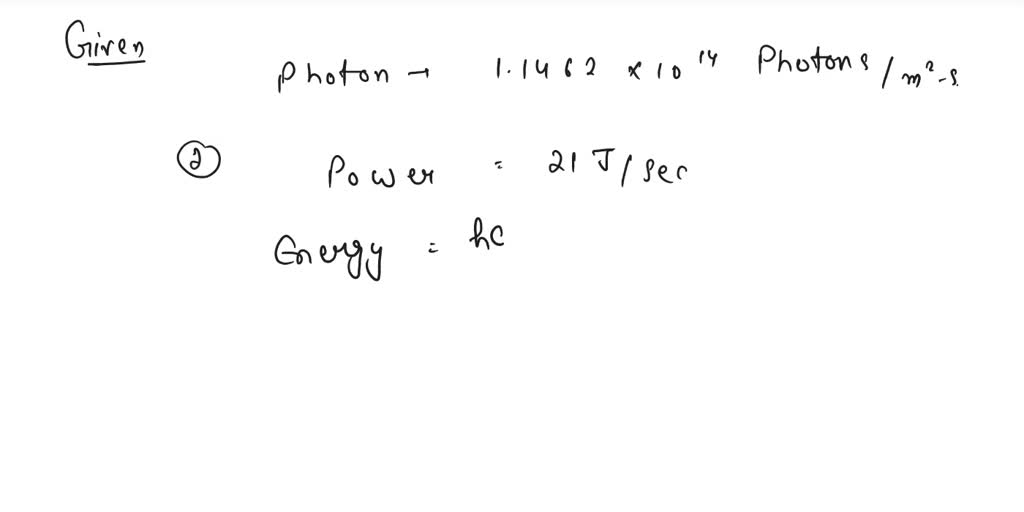 Given
Photon → 1.1462 × 10¹⁴ Photons / m²-s.
② Power = 21 J / sec
Energy = hc